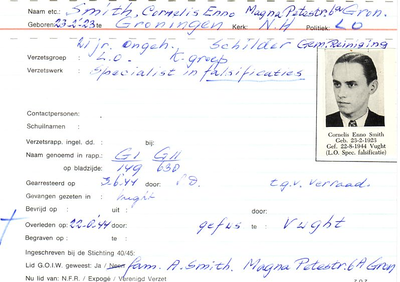 Naam etc.: Smith, Cornelis Enno Magna Petestr. 6a Gron.
Geboren: 23-2-'23 te Groningen Kerk: N.H Politiek: LO
Nijv. Ongeh. Schilder Gem. Reiniging
Verzetsgroep : L.O. K. groep
Verzetswerk : Specialist in falsificaties
Contactpersonen:
Schuilnamen :
Verzetsrapp. ingel. dd.: bij:
Naam genoemd in rapp.: G I G II
op bladzijde: 149 630
Gearresteerd op 3.6.44 door: S.D. t.g.v. verraad.
Gevangen gezeten in: Vught
Bevrijd op : uit : door:
Overleden op: 22.8.44 door: gefus. te : Vught
Begraven op : te :
Ingeschreven bij de Stichting 40/45:
Lid G.O.I.W. geweest: Ja / Neen fam. A. Smith. Magna Petestr. 6A Gron
Nu lid van: N.F.R. / Expogé / Verenigd Verzet
Cornelis Enno Smith
Geb. 23-2-1923
Gef. 22-8-1944 Vught
(L.O. Spec. falsificatie)